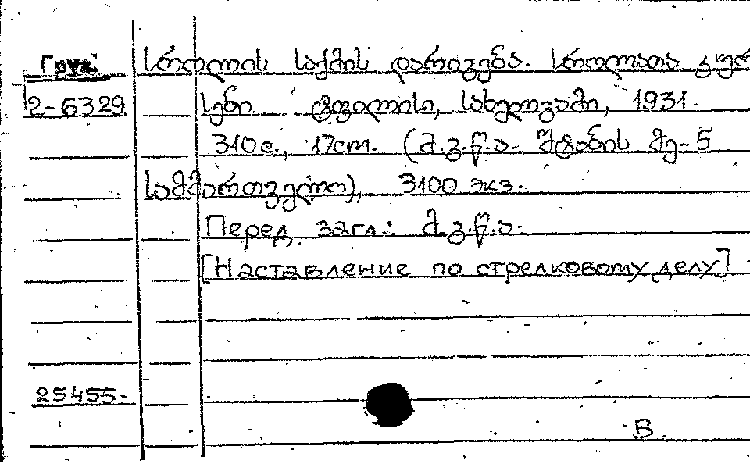 Груз. სროლის საქმის დარიგება. სროლათა კურ
2-6329 სები ტფილისი, სახელგამი, 1931.
310с., 17cm. (მ.გ.წ.ა. შტაბის მე-5
სამმართველო), 3100 экз.
Перед загл.: მ.გ.წ.ა.
[Наставление по стрелковому делу]
25455.
В.